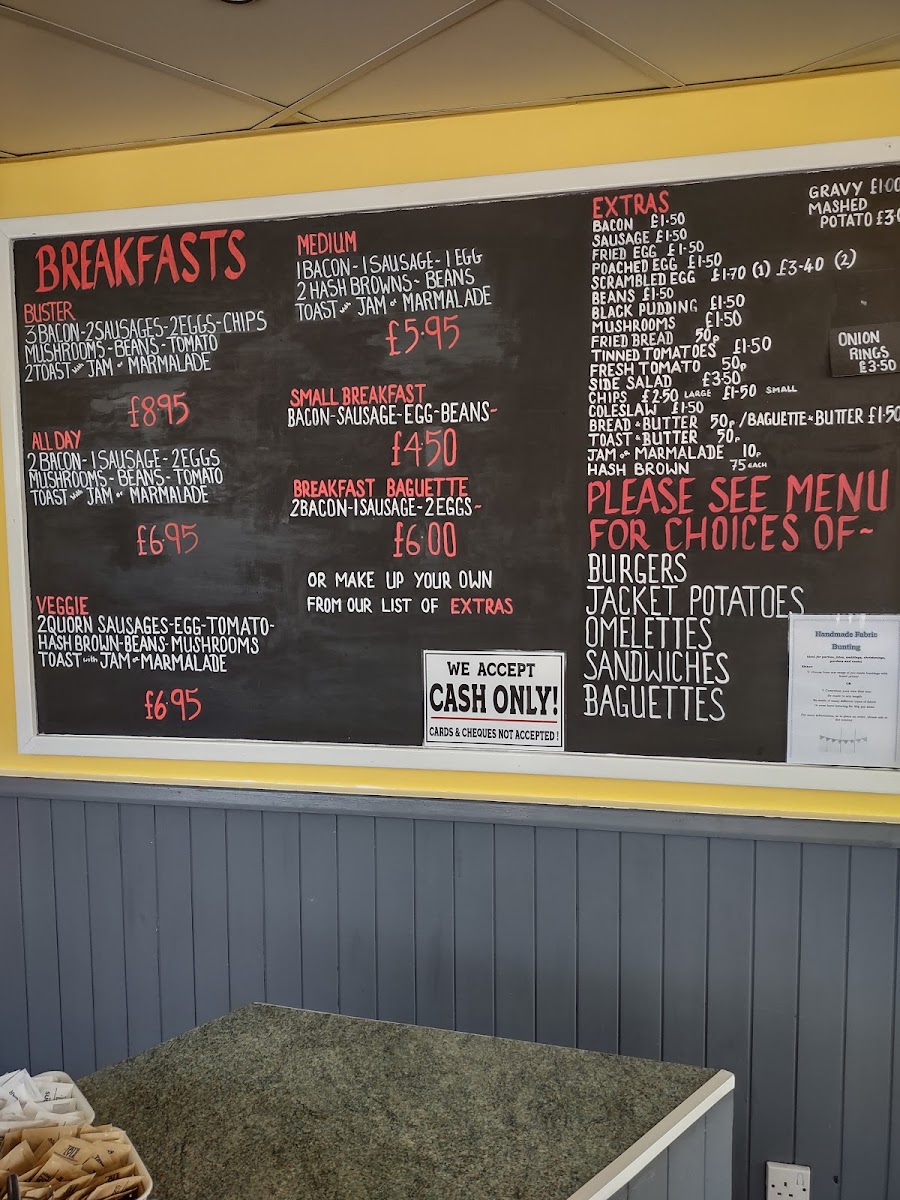 BREAKFASTS
BUSTER
3 BACON - 2 SAUSAGES - 2 EGGS - CHIPS
MUSHROOMS - BEANS - TOMATO
2 TOAST with JAM or MARMALADE
£8.95
ALL DAY
2 BACON - 1 SAUSAGE - 2 EGGS
MUSHROOMS - BEANS - TOMATO
TOAST with JAM or MARMALADE
£6.95
VEGGIE
2 QUORN SAUSAGES - EGG - TOMATO -
HASH BROWN - BEANS - MUSHROOMS
TOAST with JAM or MARMALADE
£6.95
MEDIUM
1 BACON - 1 SAUSAGE - 1 EGG
2 HASH BROWNS - BEANS
TOAST with JAM or MARMALADE
£5.95
SMALL BREAKFAST
BACON - SAUSAGE - EGG - BEANS ~
£4.50
BREAKFAST BAGUETTE
2 BACON - 1 SAUSAGE - 2 EGGS ~
£6.00
OR MAKE UP YOUR OWN
FROM OUR LIST OF EXTRAS
WE ACCEPT
CASH ONLY!
CARDS & CHEQUES NOT ACCEPTED!
EXTRAS
BACON £1.50
SAUSAGE £1.50
FRIED EGG £1.50
POACHED EGG £1.50
SCRAMBLED EGG £1.70 (1) £3.40 (2)
BEANS £1.50
BLACK PUDDING £1.50
MUSHROOMS £1.50
FRIED BREAD 50p
TINNED TOMATOES £1.50
FRESH TOMATO 50p
SIDE SALAD £3.50
CHIPS £2.50 LARGE £1.50 SMALL
COLESLAW £1.50
BREAD & BUTTER 50p / BAGUETTE & BUTTER £1.50
TOAST & BUTTER 50p
JAM or MARMALADE 10p
HASH BROWN 75 EACH
GRAVY £1.00
MASHED
POTATO £3.
ONION
RINGS
£3.50
PLEASE SEE MENU
FOR CHOICES OF ~
BURGERS
JACKET POTATOES
OMELETTES
SANDWICHES
BAGUETTES
Handmade Fabric
Bunting